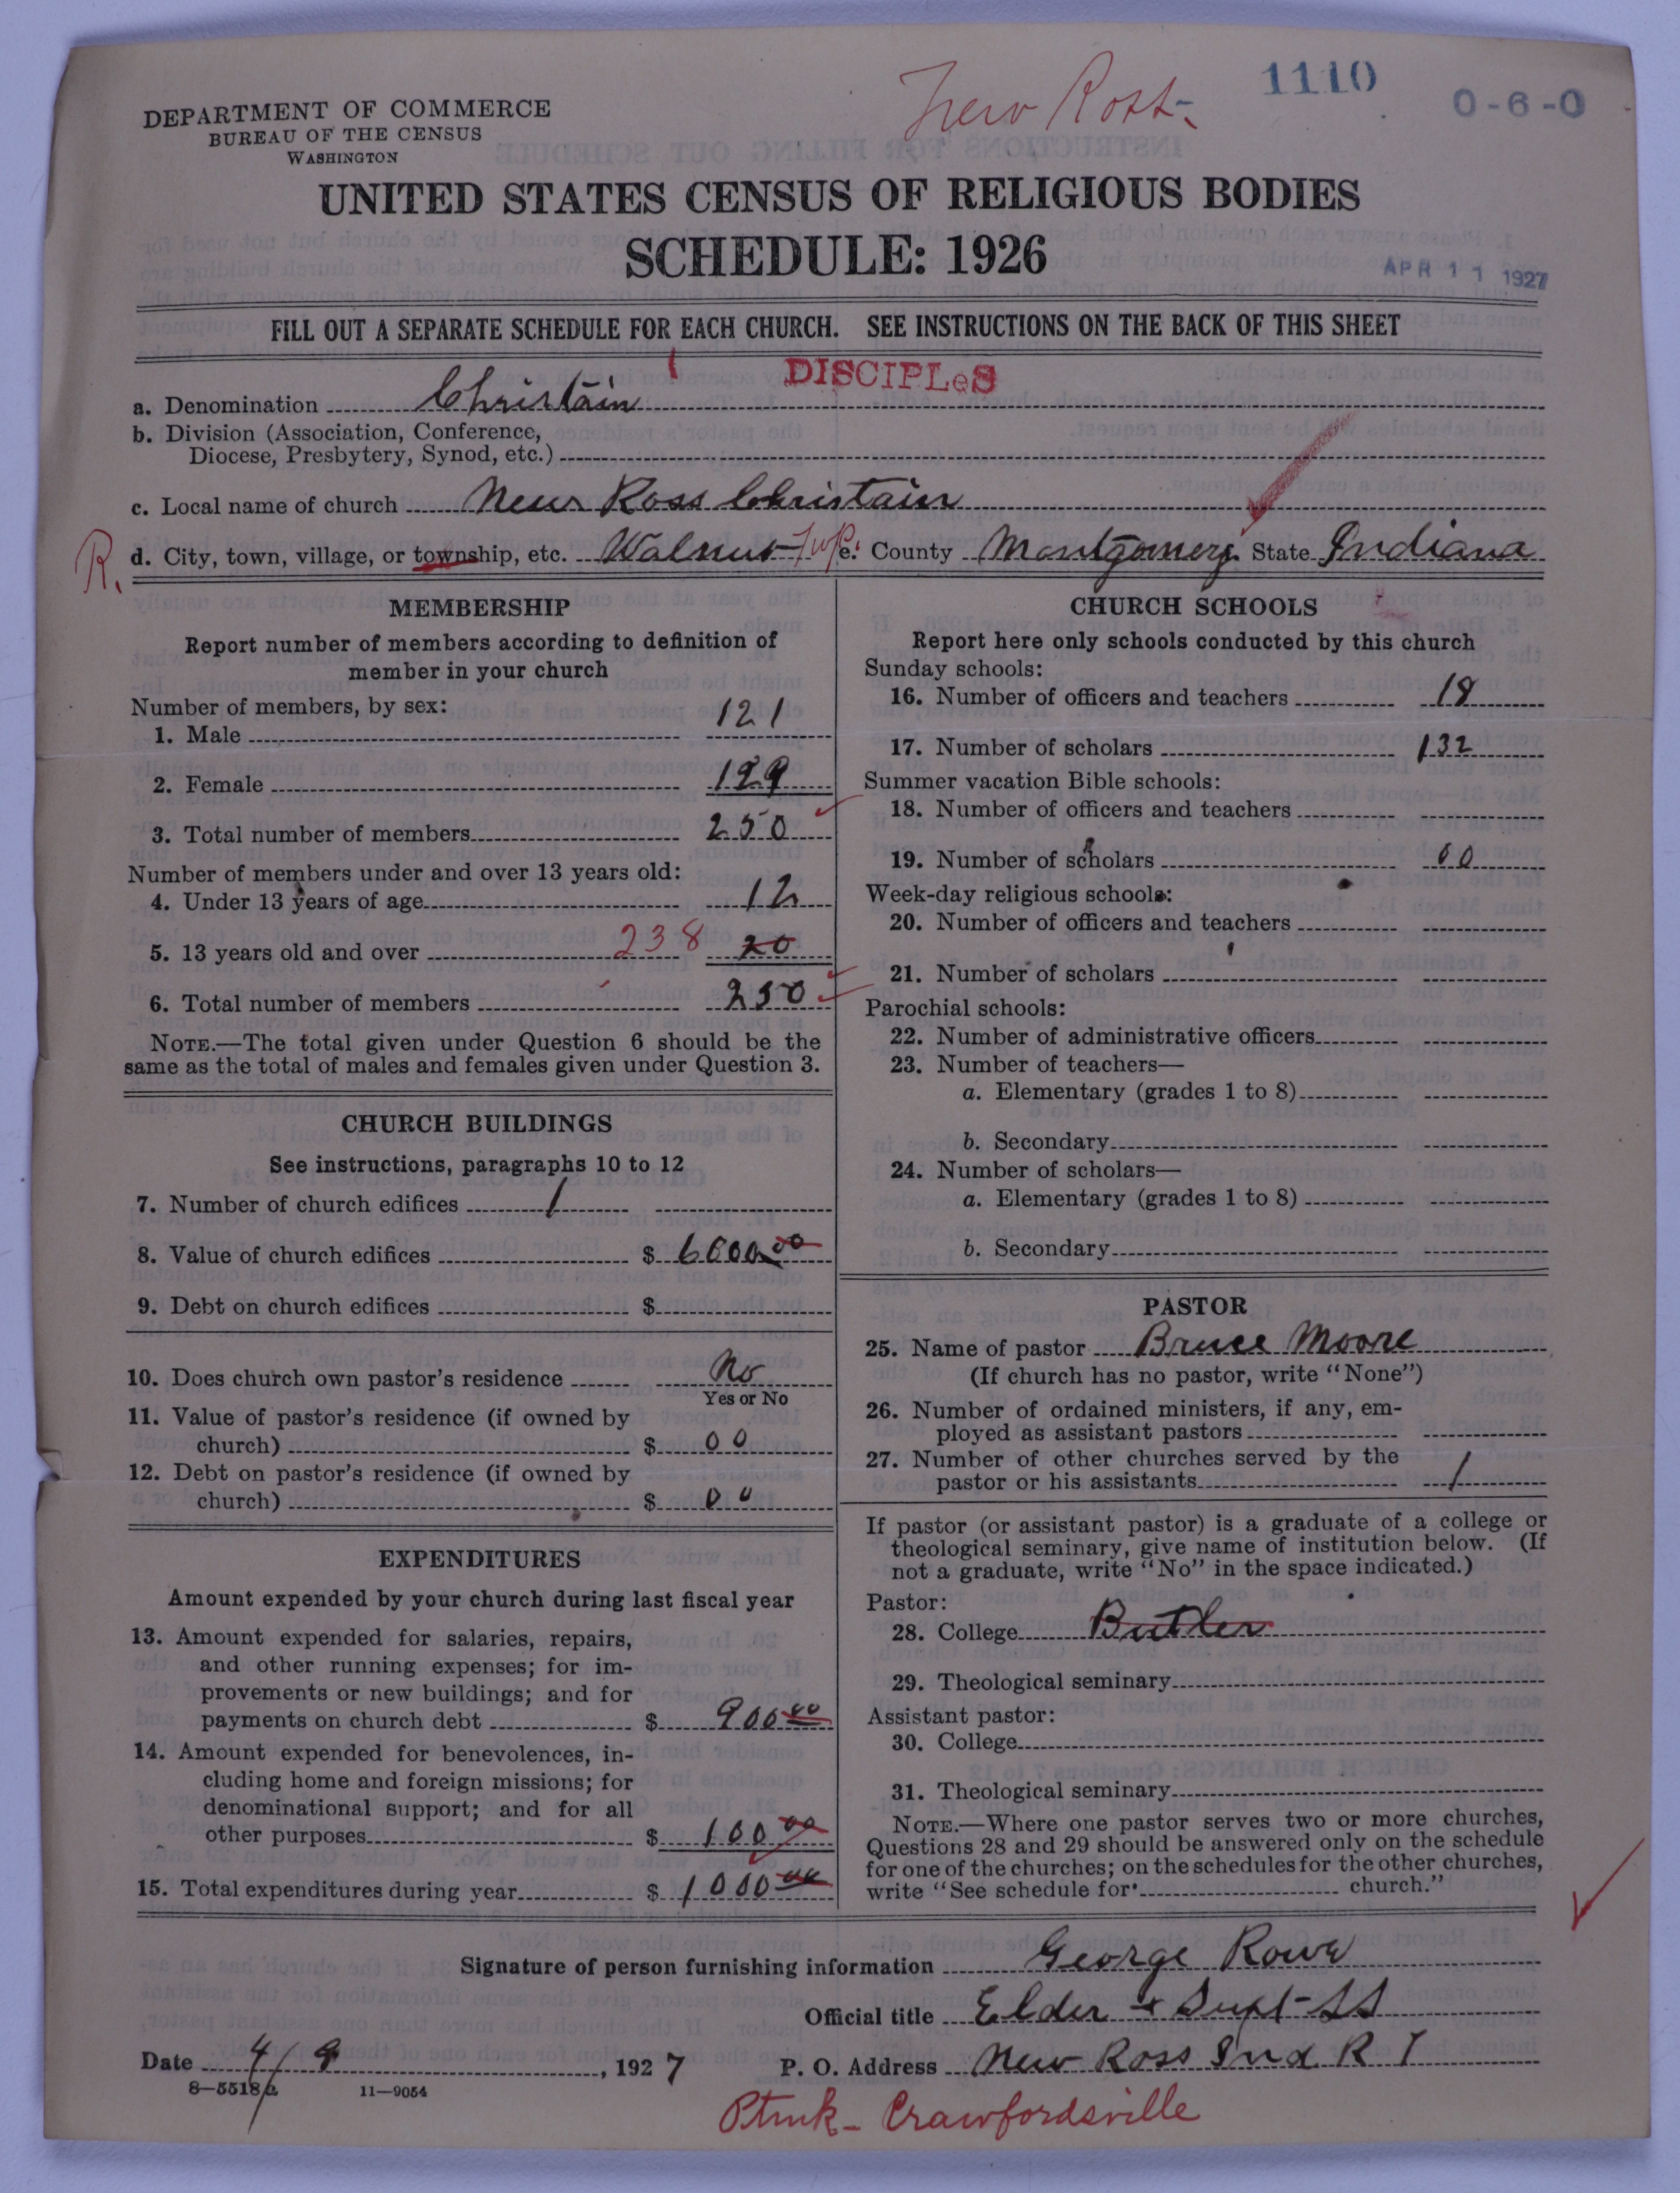 New Ross-
1110
0-6-0
DEPARTMENT OF COMMERCE
BUREAU OF THE CENSUS
WASHINGTON
UNITED STATES CENSUS OF RELIGIOUS BODIES
SCHEDULE: 1926
APR 11 1927
FILL OUT A SEPARATE SCHEDULE FOR EACH CHURCH. SEE INSTRUCTIONS ON THE BACK OF THIS SHEET
DISCIPLeS
a. Denomination Christain
b. Division (Association, Conference,
Diocese, Presbytery, Synod, etc.)
c. Local name of church New Ross Christain
R. d. City, town, village, or township, etc. Walnut Twp. e. County Montgomery State Indiana
MEMBERSHIP
Report number of members according to definition of
member in your church
Number of members, by sex:
1. Male 121
2. Female 129
3. Total number of members 250
Number of members under and over 13 years old:
4. Under 13 years of age 12
5. 13 years old and over 238 20
6. Total number of members 250
NOTE.—The total given under Question 6 should be the
same as the total of males and females given under Question 3.
CHURCH BUILDINGS
See instructions, paragraphs 10 to 12
7. Number of church edifices 1
8. Value of church edifices $ 6000 00
9. Debt on church edifices $
10. Does church own pastor's residence No
Yes or No
11. Value of pastor's residence (if owned by
church) $ 00
12. Debt on pastor's residence (if owned by
church) $ 00
EXPENDITURES
Amount expended by your church during last fiscal year
13. Amount expended for salaries, repairs,
and other running expenses; for im-
provements or new buildings; and for
payments on church debt $ 900 00
14. Amount expended for benevolences, in-
cluding home and foreign missions; for
denominational support; and for all
other purposes $ 100 00
15. Total expenditures during year $ 1000 00
CHURCH SCHOOLS
Report here only schools conducted by this church
Sunday schools:
16. Number of officers and teachers 18
17. Number of scholars 132
Summer vacation Bible schools:
18. Number of officers and teachers
19. Number of scholars 00
Week-day religious schools:
20. Number of officers and teachers
21. Number of scholars
Parochial schools:
22. Number of administrative officers
23. Number of teachers—
a. Elementary (grades 1 to 8)
b. Secondary
24. Number of scholars—
a. Elementary (grades 1 to 8)
b. Secondary
PASTOR
25. Name of pastor Bruce Moore
(If church has no pastor, write "None")
26. Number of ordained ministers, if any, em-
ployed as assistant pastors
27. Number of other churches served by the
pastor or his assistants 1
If pastor (or assistant pastor) is a graduate of a college or
theological seminary, give name of institution below. (If
not a graduate, write "No" in the space indicated.)
Pastor:
28. College Butler
29. Theological seminary
Assistant pastor:
30. College
31. Theological seminary
NOTE.—Where one pastor serves two or more churches,
Questions 28 and 29 should be answered only on the schedule
for one of the churches; on the schedules for the other churches,
write "See schedule for church."
Signature of person furnishing information George Rowe
Official title Elder + Supt-SS
Date 4/9, 1927 P. O. Address New Ross Ind R 1
8—5518a 11—9054
Crawfordsville